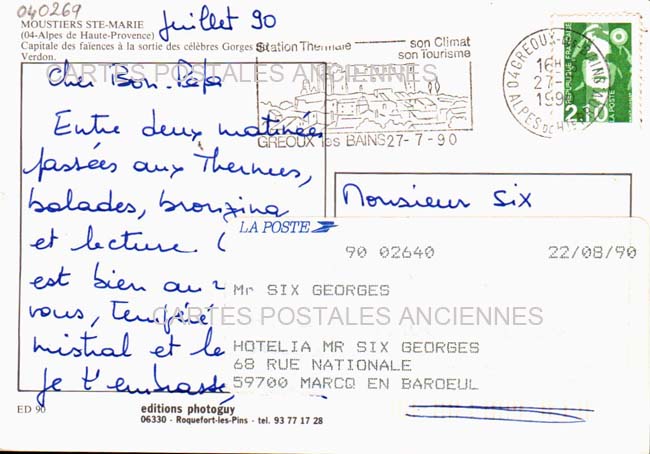 040269
MOUSTIERS STE-MARIE
(04-Alpes de Haute-Provence)
Capitale des faïences à la sortie des célèbres Gorges
Verdon.
Juillet 90
Station Thermale son Climat
son Tourisme
GREOUX les BAINS 27-7-90
04 GREOUX
16H
27-7
199
ALPES DE H
REPUBLIQUE FRANÇAISE
LA POSTE
2,10
CARTES POSTALES ANCIENNES
Cher Bon-Papa
Entre deux matinées
passées aux Thermes,
balades, bronzing
et lecture (
est bien au
vous, tempéré
mistral et le
je t'embrasse,
Monsieur Six
LA POSTE
90 02640 22/08/90
Mr SIX GEORGES
CARTES POSTALES ANCIENNES
HOTELIA MR SIX GEORGES
68 RUE NATIONALE
59700 MARCQ EN BAROEUL
ED 90
editions photoguy
06330 - Roquefort-les-Pins - tel. 93 77 17 28